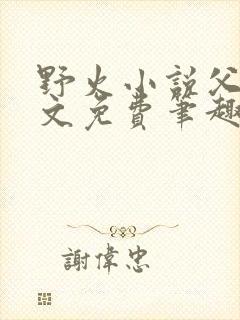 野火小説父
文免費筆趣
謝偉忠